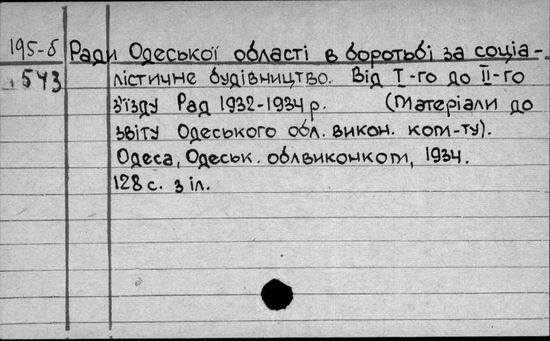 195-б Ради Одеської області в боротьбі за соціа-
543 лістичне будівництво. Від І-го до ІІ-го
з'їзду Рад 1932-1934 р. (Матеріали до
звіту Одеського обл. викон. ком-ту).
Одеса, Одеськ. облвиконком, 1934.
128 с. з іл.